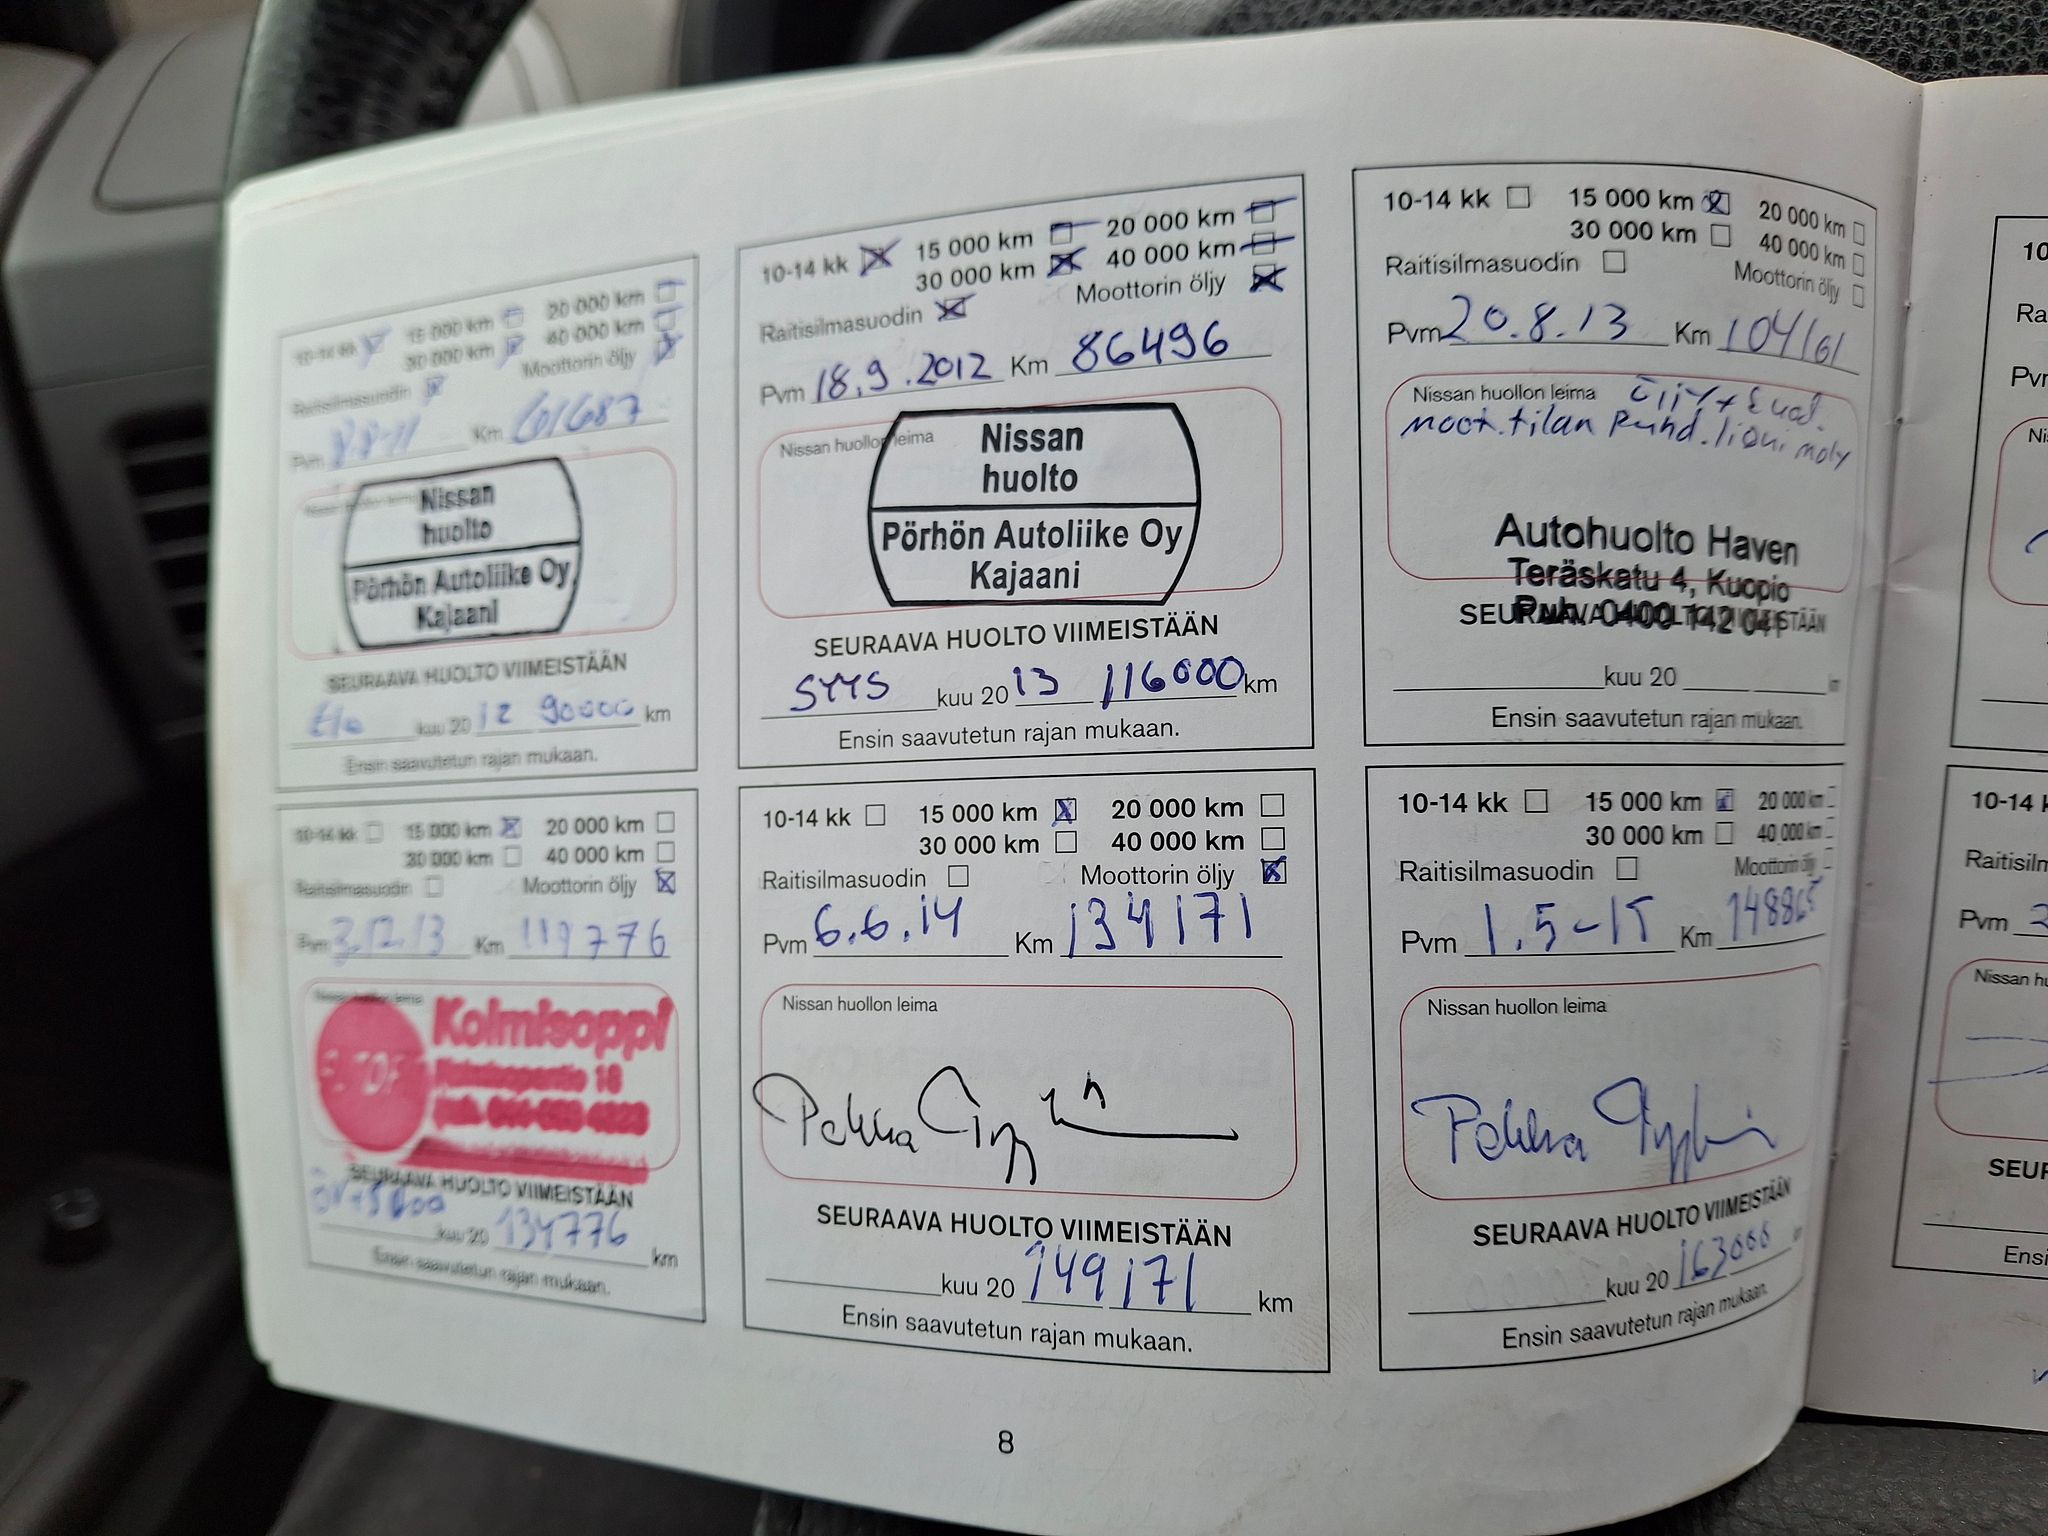 10-14 kk 15 000 km 20 000 km
30 000 km 40 000 km
Raitisilmasuodin Moottorin öljy
Pvm 8.8-11 Km 61687
Nissan huollon leima
Nissan
huolto
Pörhön Autoliike Oy
Kajaani
SEURAAVA HUOLTO VIIMEISTÄÄN
Elo kuu 20 12 90000 km
Ensin saavutetun rajan mukaan.
10-14 kk 15 000 km 20 000 km
30 000 km 40 000 km
Raitisilmasuodin Moottorin öljy
Pvm 18.9.2012 Km 86496
Nissan huollon leima
Nissan
huolto
Pörhön Autoliike Oy
Kajaani
SEURAAVA HUOLTO VIIMEISTÄÄN
SYYS kuu 20 13 116000 km
Ensin saavutetun rajan mukaan.
10-14 kk 15 000 km 20 000 km
30 000 km 40 000 km
Raitisilmasuodin Moottorin öljy
Pvm 20.8.13 Km 104161
Nissan huollon leima öljy+suod.
moot.tilan puhd. liqui moly
Autohuolto Haven
Teräskatu 4, Kuopio
Puh. 0400 142 041
SEURAAVA HUOLTO VIIMEISTÄÄN
kuu 20
Ensin saavutetun rajan mukaan.
10-14 kk 15 000 km 20 000 km
30 000 km 40 000 km
Raitisilmasuodin Moottorin öljy
Pvm 3.12.13 Km 119776
Nissan huollon leima
Kolmisoppi
SEURAAVA HUOLTO VIIMEISTÄÄN
kuu 20 134776 km
Ensin saavutetun rajan mukaan.
10-14 kk 15 000 km 20 000 km
30 000 km 40 000 km
Raitisilmasuodin Moottorin öljy
Pvm 6.6.14 Km 134171
Nissan huollon leima
Pekka
SEURAAVA HUOLTO VIIMEISTÄÄN
kuu 20 149171 km
Ensin saavutetun rajan mukaan.
10-14 kk 15 000 km 20 000 km
30 000 km 40 000 km
Raitisilmasuodin Moottorin öljy
Pvm 1.5-15 Km 148865
Nissan huollon leima
Pekka
SEURAAVA HUOLTO VIIMEISTÄÄN
kuu 20 163000 km
Ensin saavutetun rajan mukaan.
8